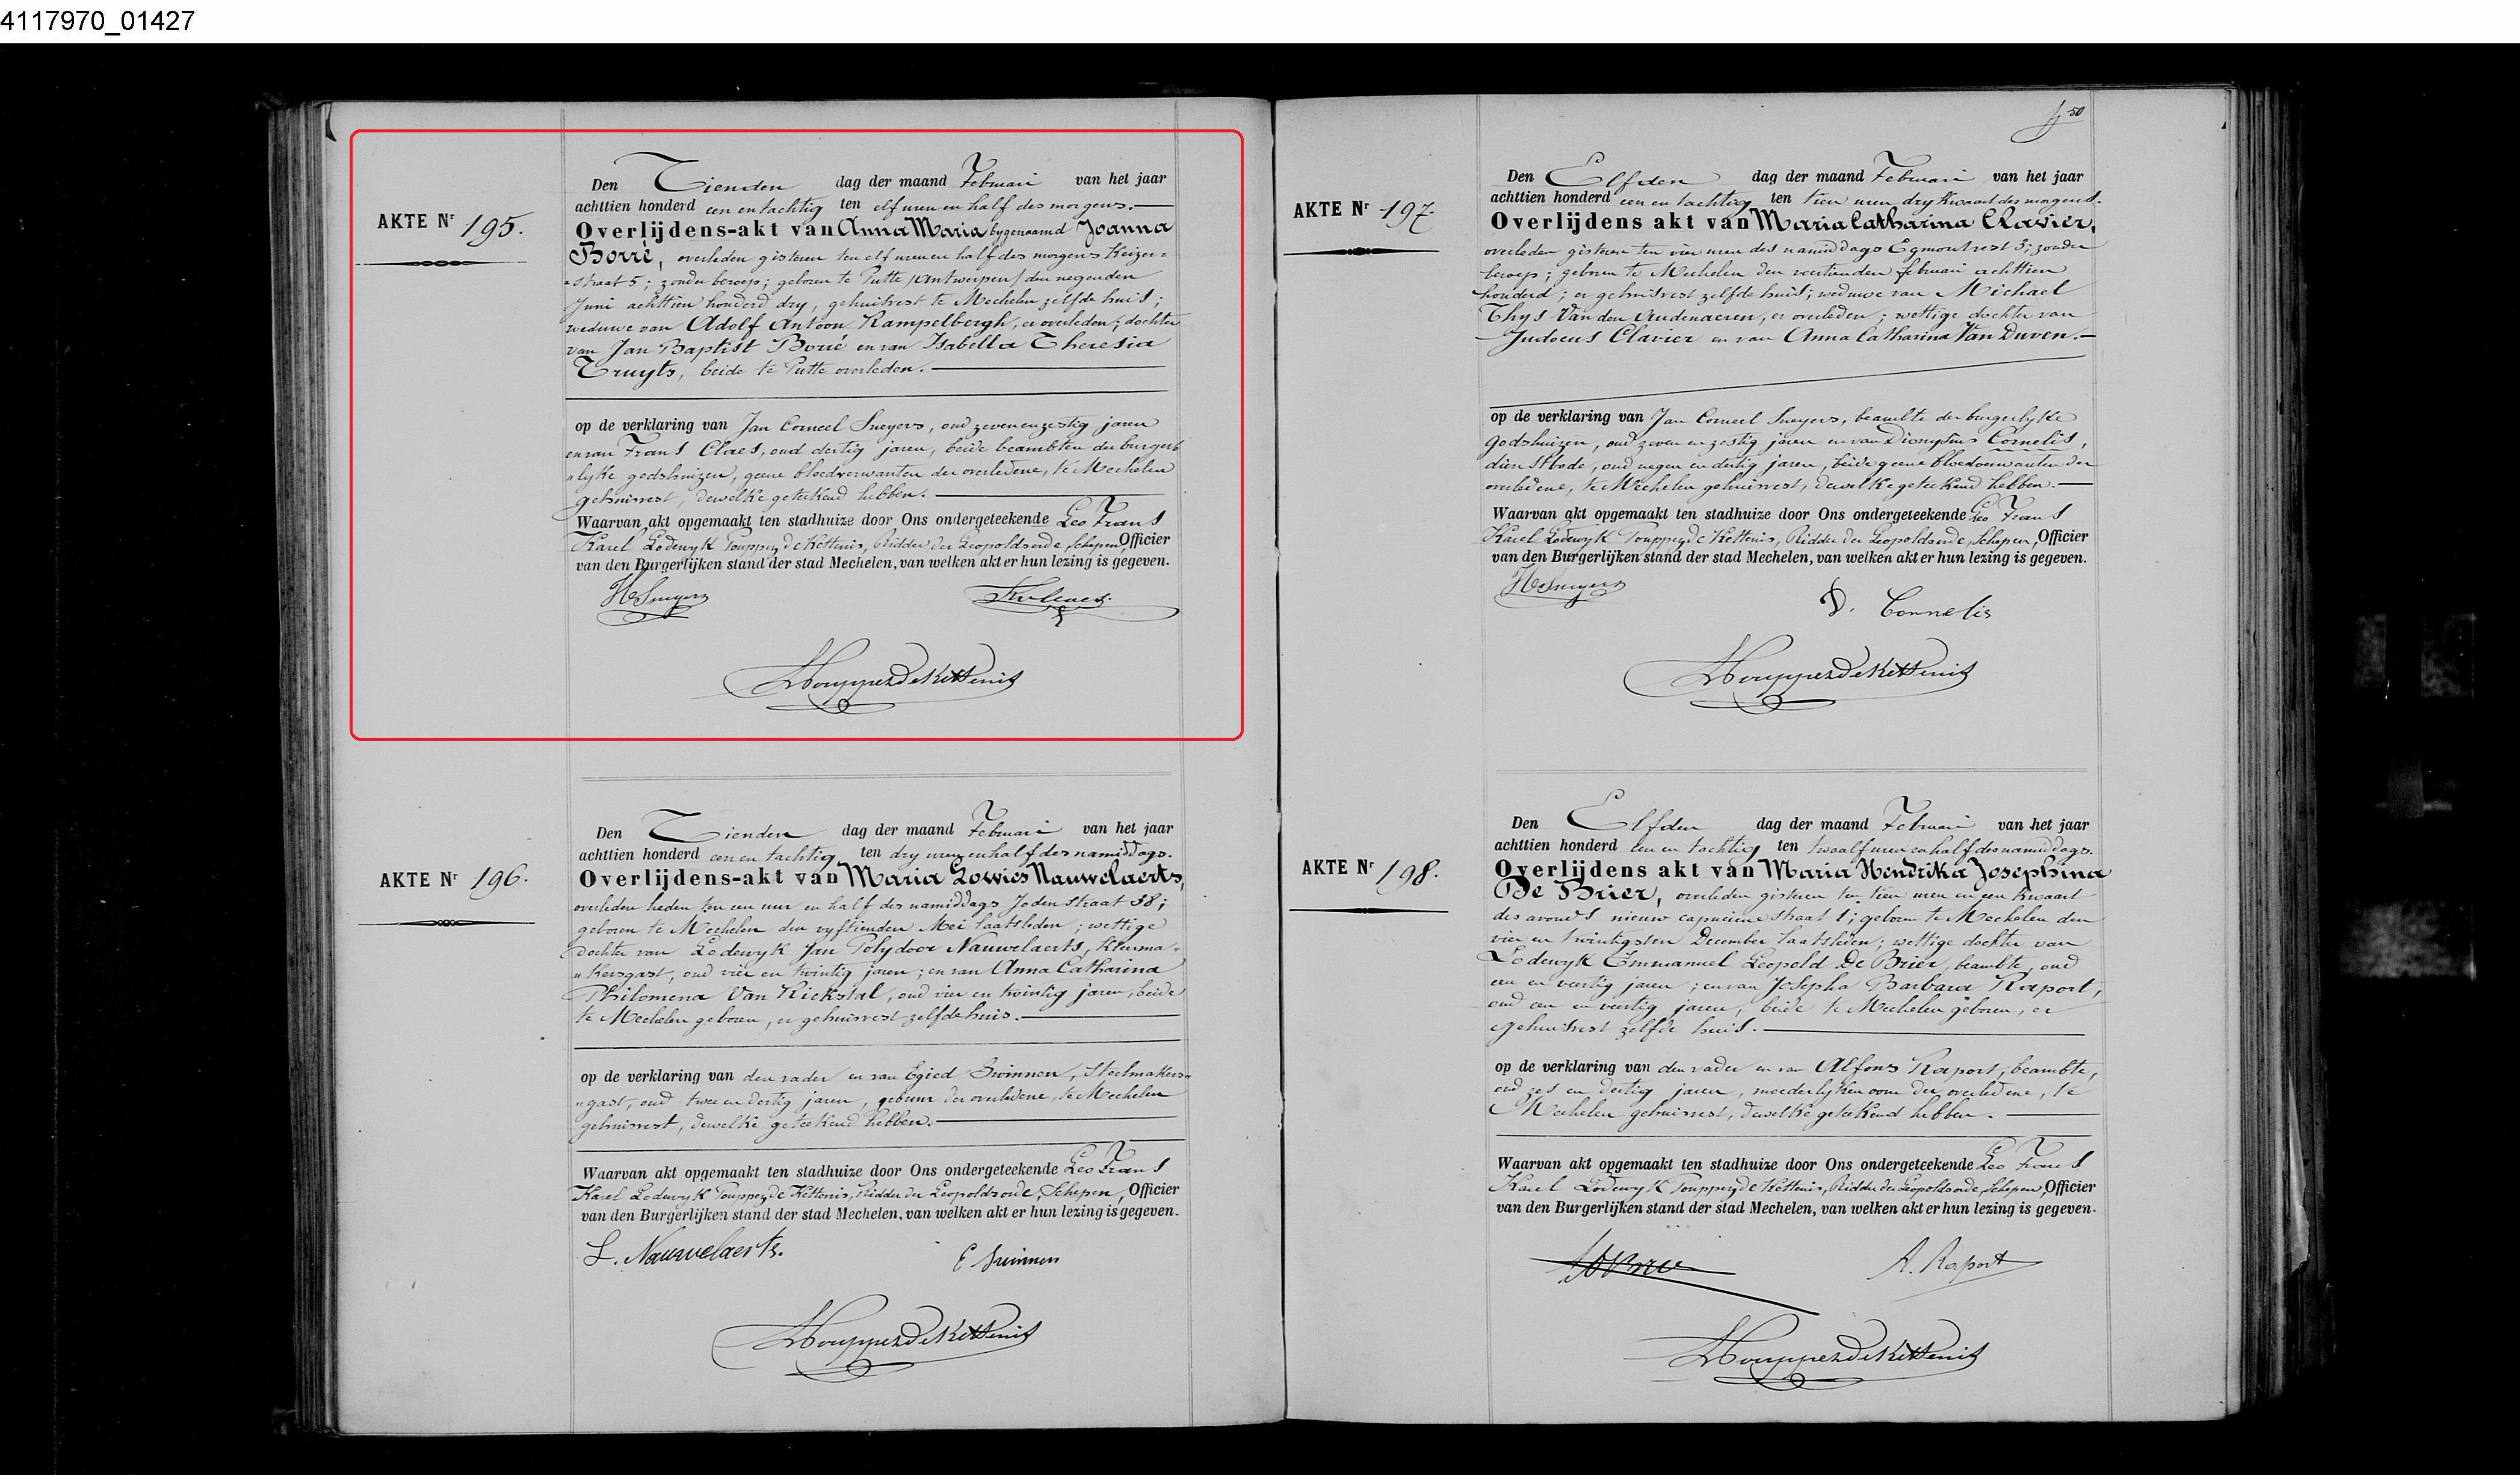 4117970_01427
AKTE Nr 195.
Den Tienden dag der maand Februari van het jaar
achttien honderd een en tachtig ten elf uren en half des morgens.
Overlijdens-akt van Anna Maria bygenaamd Joanna
Borré, overleden gisteren ten elf uren en half des morgens Keizer=
=straat 5; zonder beroep; geboren te Putte /Antwerpen/ den negenden
Juni achttien honderd dry, gehuisvest te Mechelen zelfde huis;
weduwe van Adolf Antoon Rampelbergh, er overleden; dochter
van Jan Baptist Borré en van Isabella Theresia
Truyts, beide te Putte overleden.
op de verklaring van Jan Corneel Sneyers, oud zeven en zestig jaren
en van Frans Claes, oud dertig jaren, beide beambten der burger=
=lyke godshuizen, geene bloedverwanten der overledene, te Mechelen
gehuisvest, dewelke geteekend hebben.
Waarvan akt opgemaakt ten stadhuize door Ons ondergeteekende Leo Frans
Karel Lodewyk Pouppez de Kettenis, Ridder der Leopoldsorde, Schepen, Officier
van den Burgerlijken stand der stad Mechelen, van welken akt er hun lezing is gegeven.
Sneyers
PouppezdeKettenis
AKTE Nr 196.
Den Tienden dag der maand Februari van het jaar
achttien honderd een en tachtig ten dry uren en half des namiddags.
Overlijdens-akt van Maria Lowies Nauwelaerts,
overleden heden ten een uur en half des namiddags Joden straat 38;
geboren te Mechelen den vyftienden Mei laatsleden; wettige
dochter van Lodewyk Jan Polydoor Nauwelaerts, kleerma=
=kersgast, oud vier en twintig jaren; en van Anna Catharina
Philomena Van Kiekstal, oud vier en twintig jaren, beide
te Mechelen geboren, er gehuisvest zelfde huis.
op de verklaring van den vader en van Egied Swinnen, stoelmakers=
=gast, oud twee en dertig jaren, gebuur der overledene, te Mechelen
gehuisvest, dewelke geteekend hebben.
Waarvan akt opgemaakt ten stadhuize door Ons ondergeteekende Leo Frans
Karel Lodewyk Pouppez de Kettenis, Ridder der Leopoldsorde, Schepen, Officier
van den Burgerlijken stand der stad Mechelen, van welken akt er hun lezing is gegeven.
L. Nauwelaerts. E Swinnen
PouppezdeKettenis
50
AKTE Nr 197.
Den Elfden dag der maand Februari van het jaar
achttien honderd een en tachtig ten tien uren dry kwaart des morgens.
Overlijdens akt van Maria Catharina Clavier,
overleden gisteren ten vier uren des namiddags Egmontvest 3; zonder
beroep; geboren te Mechelen den veertienden februari achttien
honderd; er gehuisvest zelfde huis; weduwe van Michael
Thys Van den Audenaeren, er overleden; wettige dochter van
Judocus Clavier en van Anna Catharina Van Duven.
op de verklaring van Jan Corneel Sneyers, beambte der burgerlyke
Godshuizen, oud zeven en zestig jaren en van Dionysius Cornelis,
dienstbode, oud negen en dertig jaren, beide geene bloedverwanten der
overledene, te Mechelen gehuisvest, dewelke geteekend hebben.
Waarvan akt opgemaakt ten stadhuize door Ons ondergeteekende Leo Frans
Karel Lodewyk Pouppez de Kettenis, Ridder der Leopoldsorde, Schepen, Officier
van den Burgerlijken stand der stad Mechelen, van welken akt er hun lezing is gegeven.
Sneyers
D. Cornelis
PouppezdeKettenis
AKTE Nr 198.
Den Elfden dag der maand Februari van het jaar
achttien honderd een en tachtig ten twaalf uren en half des namiddags.
Overlijdens akt van Maria Hendrika Josephina
De Brier, overleden gisteren ten tien uren en een kwaart
des avonds nieuw capucienestraat 1; geboren te Mechelen den
vier en twintigsten December laatsleden; wettige dochter van
Lodewyk Emmanuel Leopold De Brier, beambte, oud
een en veertig jaren; en van Josepha Barbara Raport,
oud een en veertig jaren, beide te Mechelen geboren, er
gehuisvest zelfde huis.
op de verklaring van den vader en van Alfons Raport, beambte,
oud zes en dertig jaren, moederlyken oom der overledene, te
Mechelen gehuisvest, dewelke geteekend hebben.
Waarvan akt opgemaakt ten stadhuize door Ons ondergeteekende Leo Frans
Karel Lodewyk Pouppez de Kettenis, Ridder der Leopoldsorde, Schepen, Officier
van den Burgerlijken stand der stad Mechelen, van welken akt er hun lezing is gegeven.
A. Raport
PouppezdeKettenis